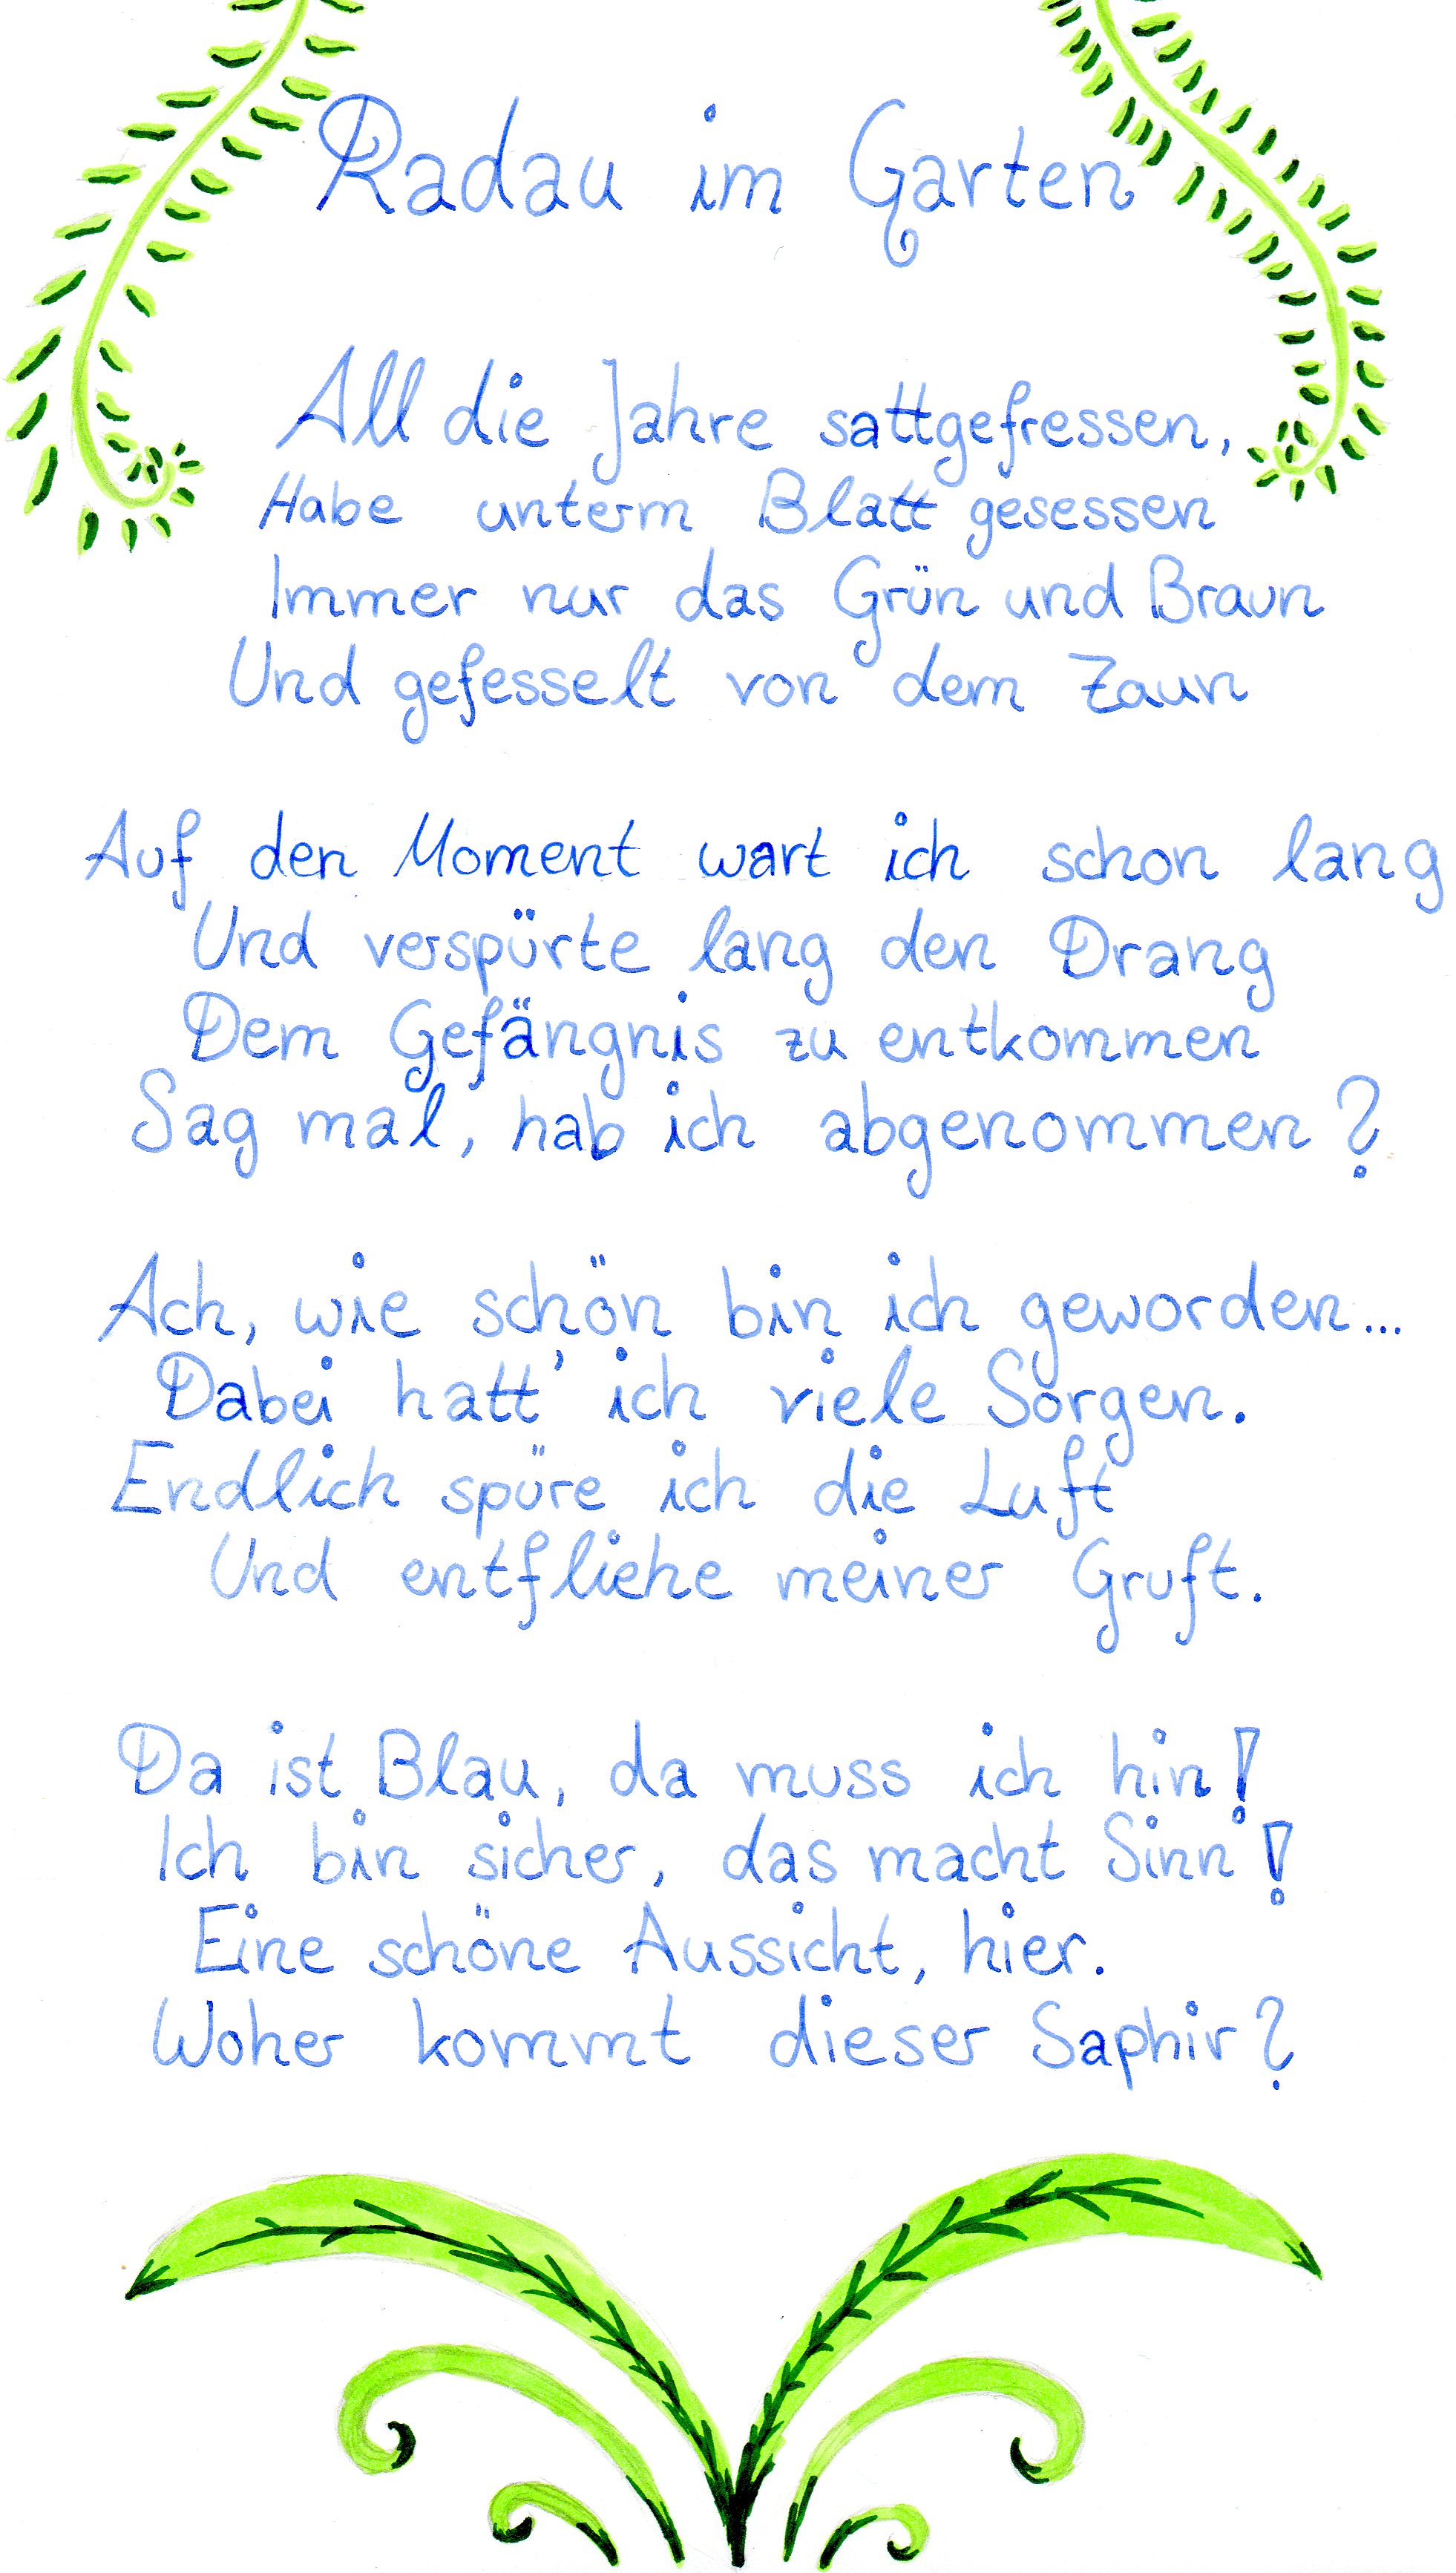 Radau im Garten
All die Jahre sattgefressen,
Habe unterm Blatt gesessen
Immer nur das Grün und Braun
Und gefesselt von dem Zaun
Auf den Moment wart ich schon lang
Und verspürte lang den Drang
Dem Gefängnis zu entkommen
Sag mal, hab ich abgenommen?
Ach, wie schön bin ich geworden...
Dabei hatt' ich viele Sorgen.
Endlich spüre ich die Luft
Und entfliehe meiner Gruft.
Da ist Blau, da muss ich hin!
Ich bin sicher, das macht Sinn!
Eine schöne Aussicht, hier.
Woher kommt dieser Saphir?